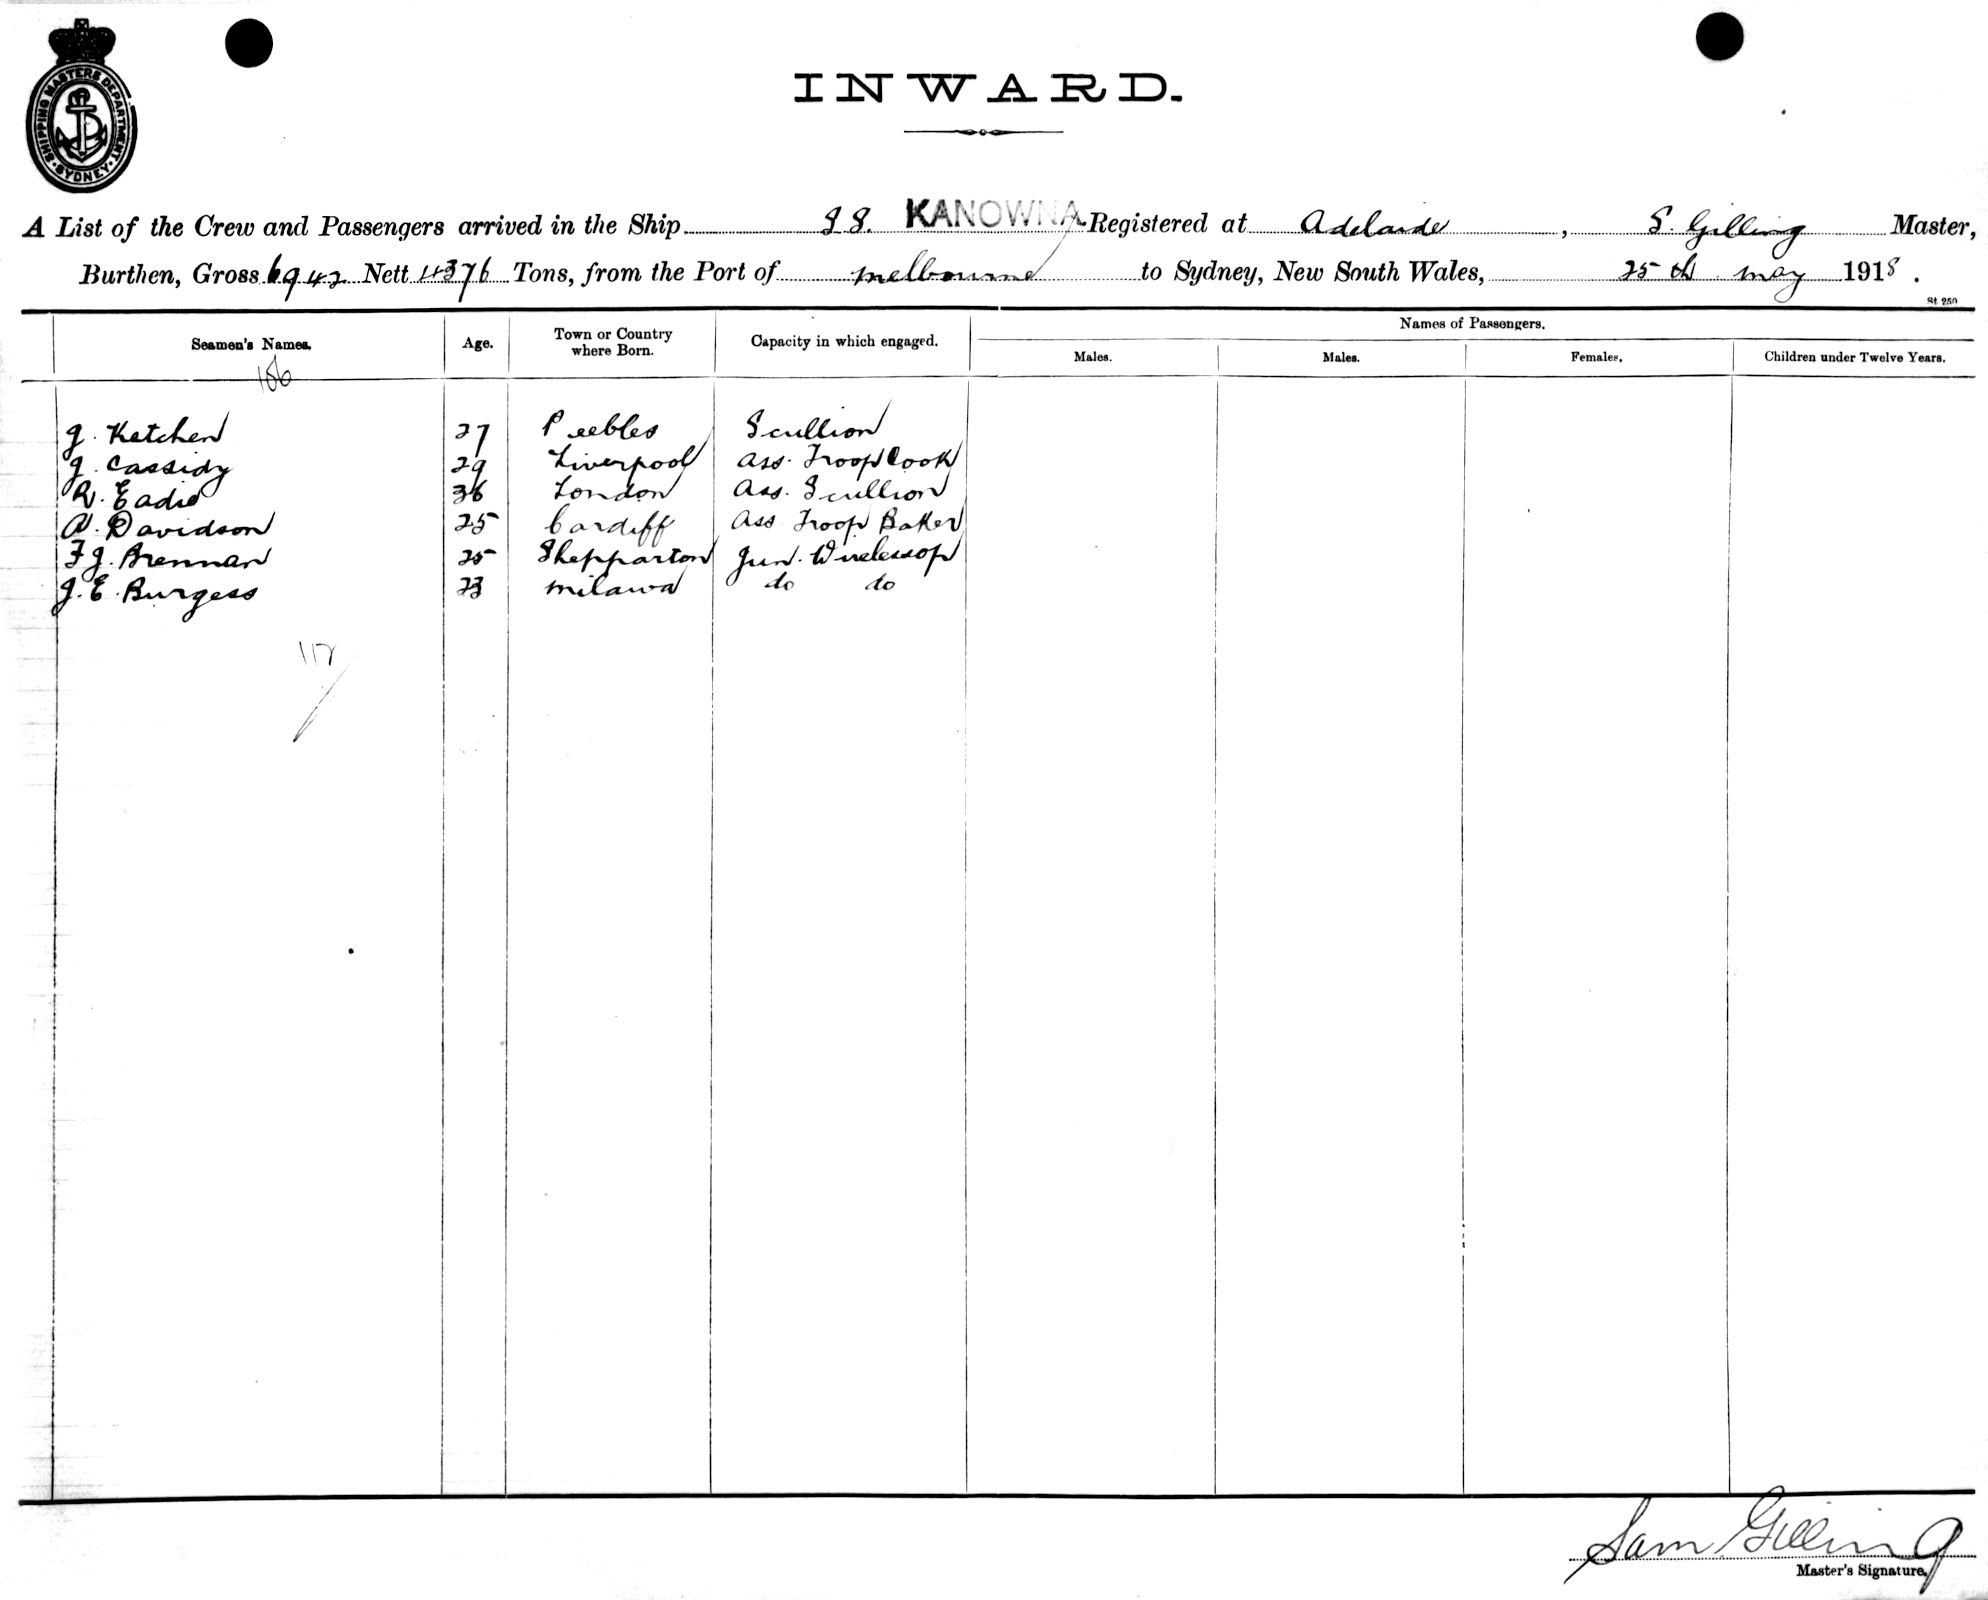 SHIPPING MASTERS DEPARTMENT
SYDNEY
INWARD.
A List of the Crew and Passengers arrived in the Ship SS. KANOWNA Registered at Adelaide, S. Gilling Master,
Burthen, Gross 6942 Nett 4376 Tons, from the Port of Melbourne to Sydney, New South Wales, 25th May 1918.
St 250
Seamen's Names. Age. Town or Country where Born. Capacity in which engaged. Names of Passengers.
Males. Males. Females. Children under Twelve Years.
106
J. Ketchen 27 Peebles Scullion
J. Cassidy 29 Liverpool Ass. Troop Cook
R. Eadie 36 London Ass. Scullion
A. Davidson 25 Cardiff Ass Troop Baker
F J. Brennan 25 Shepparton Jun. Wireless op
J. E. Burgess 23 Milawa do do
112
Sam Gilling
Master's Signature.